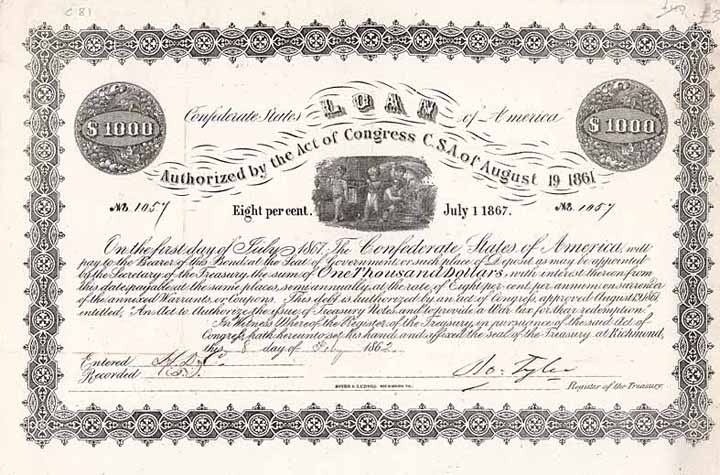 C 81
$1000
$1000
Confederate States LOAN of America
Authorized by the Act of Congress C.S.A. of August 19 1861
No. 1057 Eight per cent. July 1 1867. No. 1057
On the first day of July 1867, The Confederate States of America, will
pay to the Bearer of this Bond, at the Seat of Government, or such place of Deposit as may be appointed
by the Secretary of the Treasury, the sum of One Thousand Dollars, with interest thereon from
this date, payable at the same places, semi annually, at the rate of Eight per cent. per annum, on surrender
of the annexed Warrants or Coupons. This debt is authorized by an act of Congress, approved August 19, 1861
entitled, "An Act to Authorize the issue of Treasury Notes, and to provide a War tax for their redemption."
In Witness Whereof, the Register of the Treasury, in pursuance of the said Act of
Congress, hath hereunto set his hand, and affixed the seal of the Treasury, at Richmond,
this 8 day of Feby 1862.
Entered
Recorded
Ro. Tyler
Register of the Treasury.
HOYER & LUDWIG, RICHMOND VA.